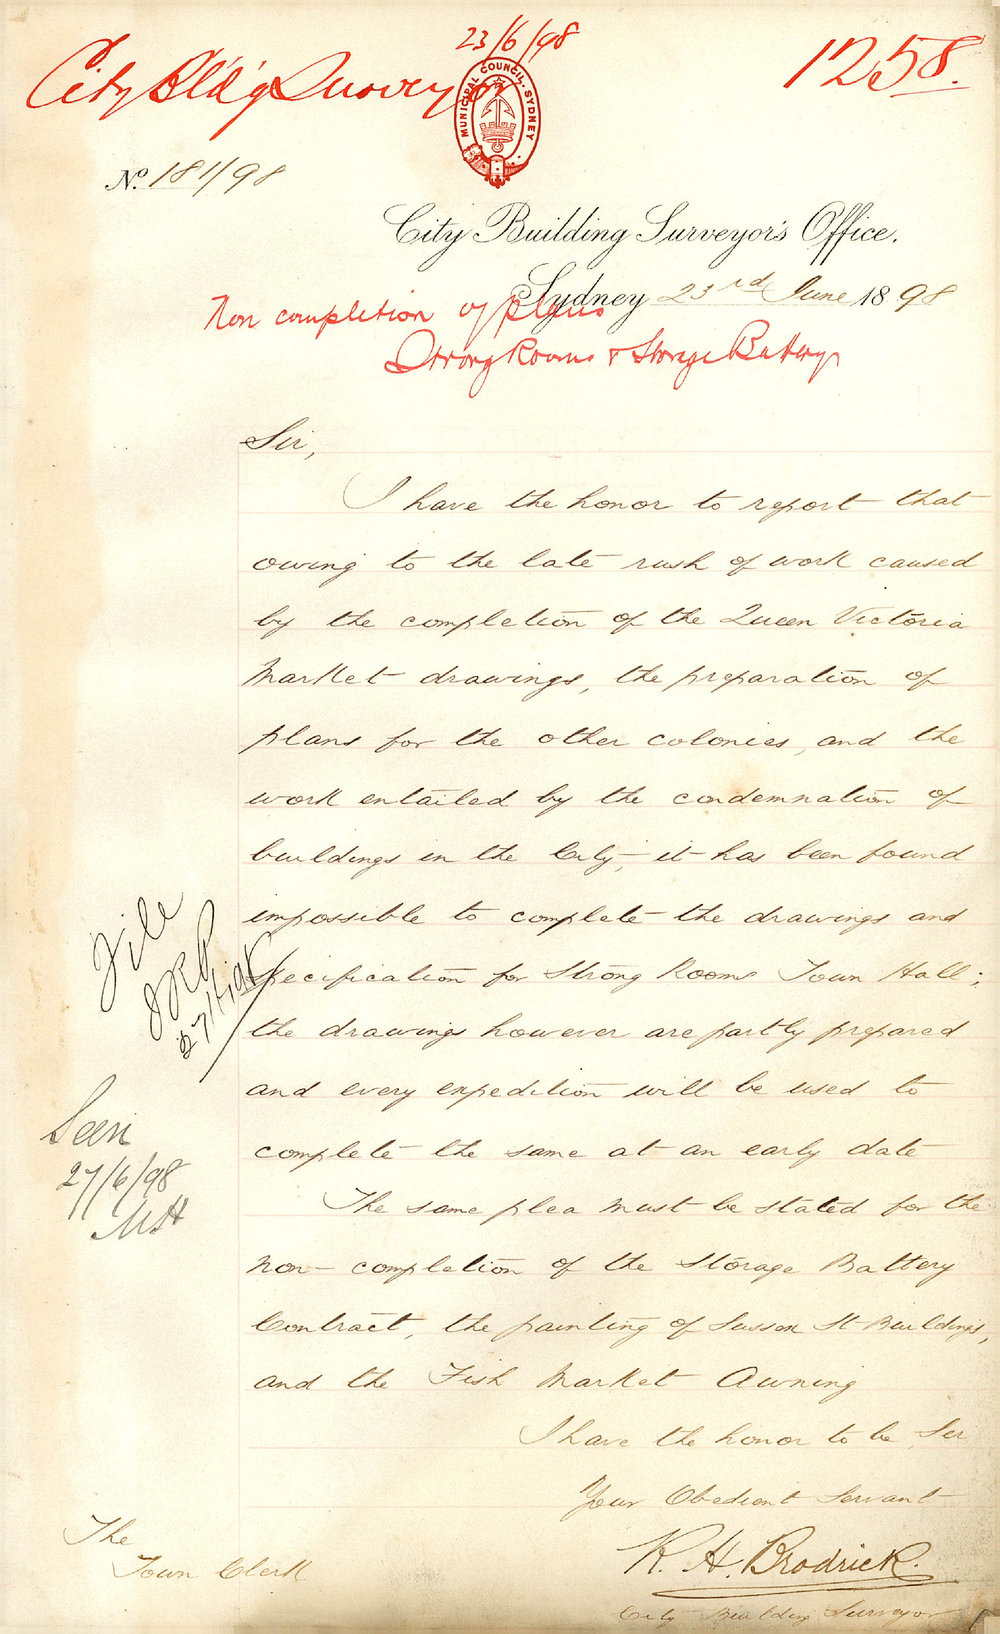 23/6/98
City Bld'g Surveyor
1258.
MUNICIPAL COUNCIL. SYDNEY
No. 181/98
City Building Surveyor's Office.
Sydney 23rd June 1898
Non completion of plans
Strong Rooms & Storage Battery
Sir,
I have the honor to report that
owing to the late rush of work caused
by the completion of the Queen Victoria
Market drawings, the preparation of
plans for the other colonies, and the
work entailed by the condemnation of
buildings in the City, it has been found
impossible to complete the drawings and
specification for Strong Rooms Town Hall;
the drawings however are partly prepared
and every expedition will be used to
complete the same at an early date
The same plea must be stated for the
non-completion of the Storage Battery
Contract, the painting of Sussex St Buildings,
and the Fish Market Awning
I have the honor to be Sir
Your Obedient Servant
R. H. Brodrick.
City Building Surveyor
The
Town Clerk
File
Seen
27/6/98